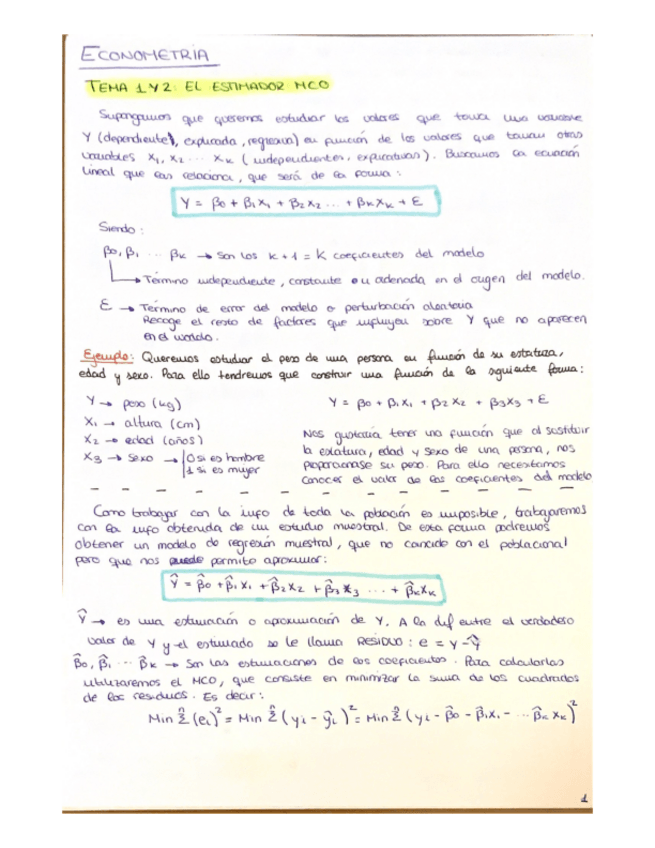 ECONOMETRIA
TEMA 1 Y 2: EL ESTIMADOR MCO
Supongamos que queremos estudiar los valores que toma una variable
Y (dependiente, explicada, regresora) en función de los valores que toman otras
variables X₁, X₂ ... Xₖ (independientes, explicativas). Buscamos la ecuación
lineal que las relaciona, que será de la forma:
Y = β₀ + β₁X₁ + β₂X₂ ... + βₖXₖ + ε
Siendo:
β₀, β₁ ... βₖ → Son los k + 1 = K coeficientes del modelo
→ Término independiente, constante o u ordenada en el origen del modelo.
ε → Término de error del modelo o perturbación aleatoria
Recoge el resto de factores que influyen sobre Y que no aparecen
en el modelo.
Ejemplo: Queremos estudiar el peso de una persona en función de su estatura,
edad y sexo. Para ello tendremos que construir una función de la siguiente forma:
Y → peso (kg)
X₁ → altura (cm)
X₂ → edad (años)
X₃ → sexo → | 0 si es hombre
1 si es mujer
Y = β₀ + β₁X₁ + β₂X₂ + β₃X₃ + ε
Nos gustaría tener una función que al sustituir
la estatura, edad y sexo de una persona, nos
proporcionase su peso. Para ello necesitamos
conocer el valor de los coeficientes del modelo
Como trabajar con la info de toda la población es imposible, trabajaremos
con la info obtenida de un estudio muestral. De esta forma podremos
obtener un modelo de regresión muestral, que no coincide con el poblacional
pero que nos puede permito aproximar:
Ŷ = β̂₀ + β̂₁X₁ + β̂₂X₂ + β̂₃X₃ ... + β̂ₖXₖ
Ŷ → es una estimación o aproximación de Y. A la dif entre el verdadero
valor de Y y el estimado se le llama RESIDUO: e = y - ŷ
β̂₀, β̂₁ ... β̂ₖ → Son las estimaciones de los coeficientes. Para calcularlas
utilizaremos el MCO, que consiste en minimizar la suma de los cuadrados
de los residuos. Es decir:
Min Σⁿ (eᵢ)² = Min Σⁿ (yᵢ - ŷᵢ)² = Min Σⁿ (yᵢ - β̂₀ - β̂₁X₁ - ... β̂ₖXₖ)²
1